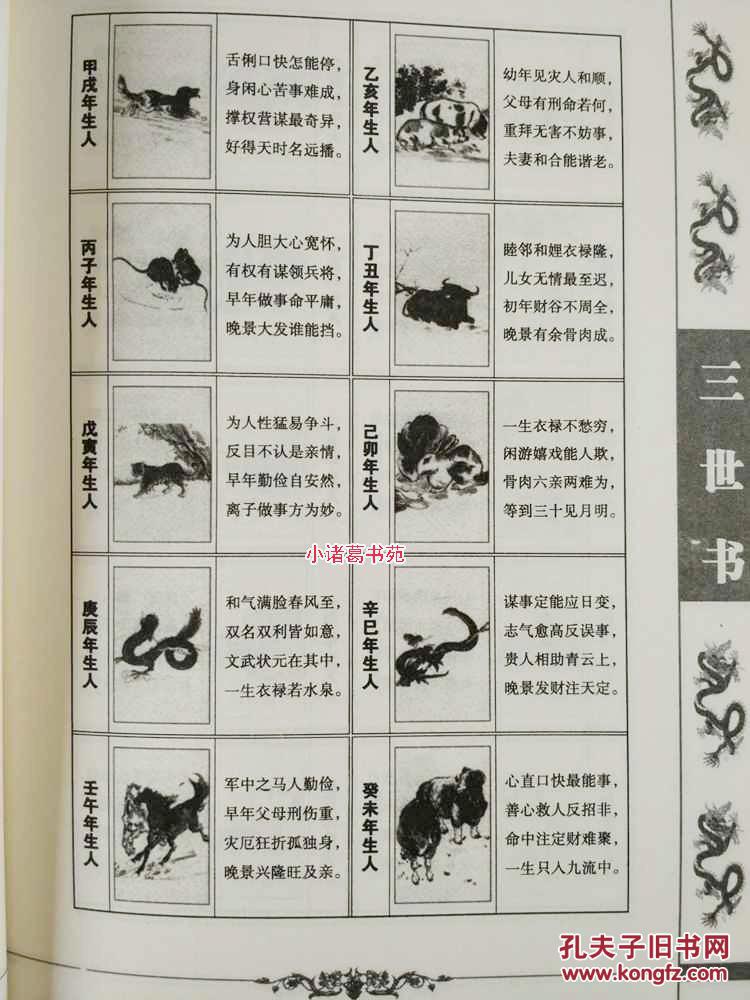 甲戌年生人
舌俐口快怎能停，
身闲心苦事难成，
撑权营谋最奇异，
好得天时名远播。
乙亥年生人
幼年见灾人和顺，
父母有刑命若何，
重拜无害不妨事，
夫妻和合能谐老。
丙子年生人
为人胆大心宽怀，
有权有谋领兵将，
早年做事命平庸，
晚景大发谁能挡。
丁丑年生人
睦邻和娌衣禄隆，
儿女无情最至迟，
初年财谷不周全，
晚景有余骨肉成。
戊寅年生人
为人性猛易争斗，
反目不认是亲情，
早年勤俭自安然，
离子做事方为妙。
己卯年生人
一生衣禄不愁穷，
闲游嬉戏能人欺，
骨肉六亲两难为，
等到三十见月明。
小诸葛书苑
庚辰年生人
和气满脸春风至，
双名双利皆如意，
文武状元在其中，
一生衣禄若水泉。
辛巳年生人
谋事定能应日变，
志气愈高反误事，
贵人相助青云上，
晚景发财注天定。
壬午年生人
军中之马人勤俭，
早年父母刑伤重，
灾厄狂折孤独身，
晚景兴隆旺及亲。
癸未年生人
心直口快最能事，
善心救人反招非，
命中注定财难聚，
一生只入九流中。
三世书
孔夫子旧书网
www.kongfz.com